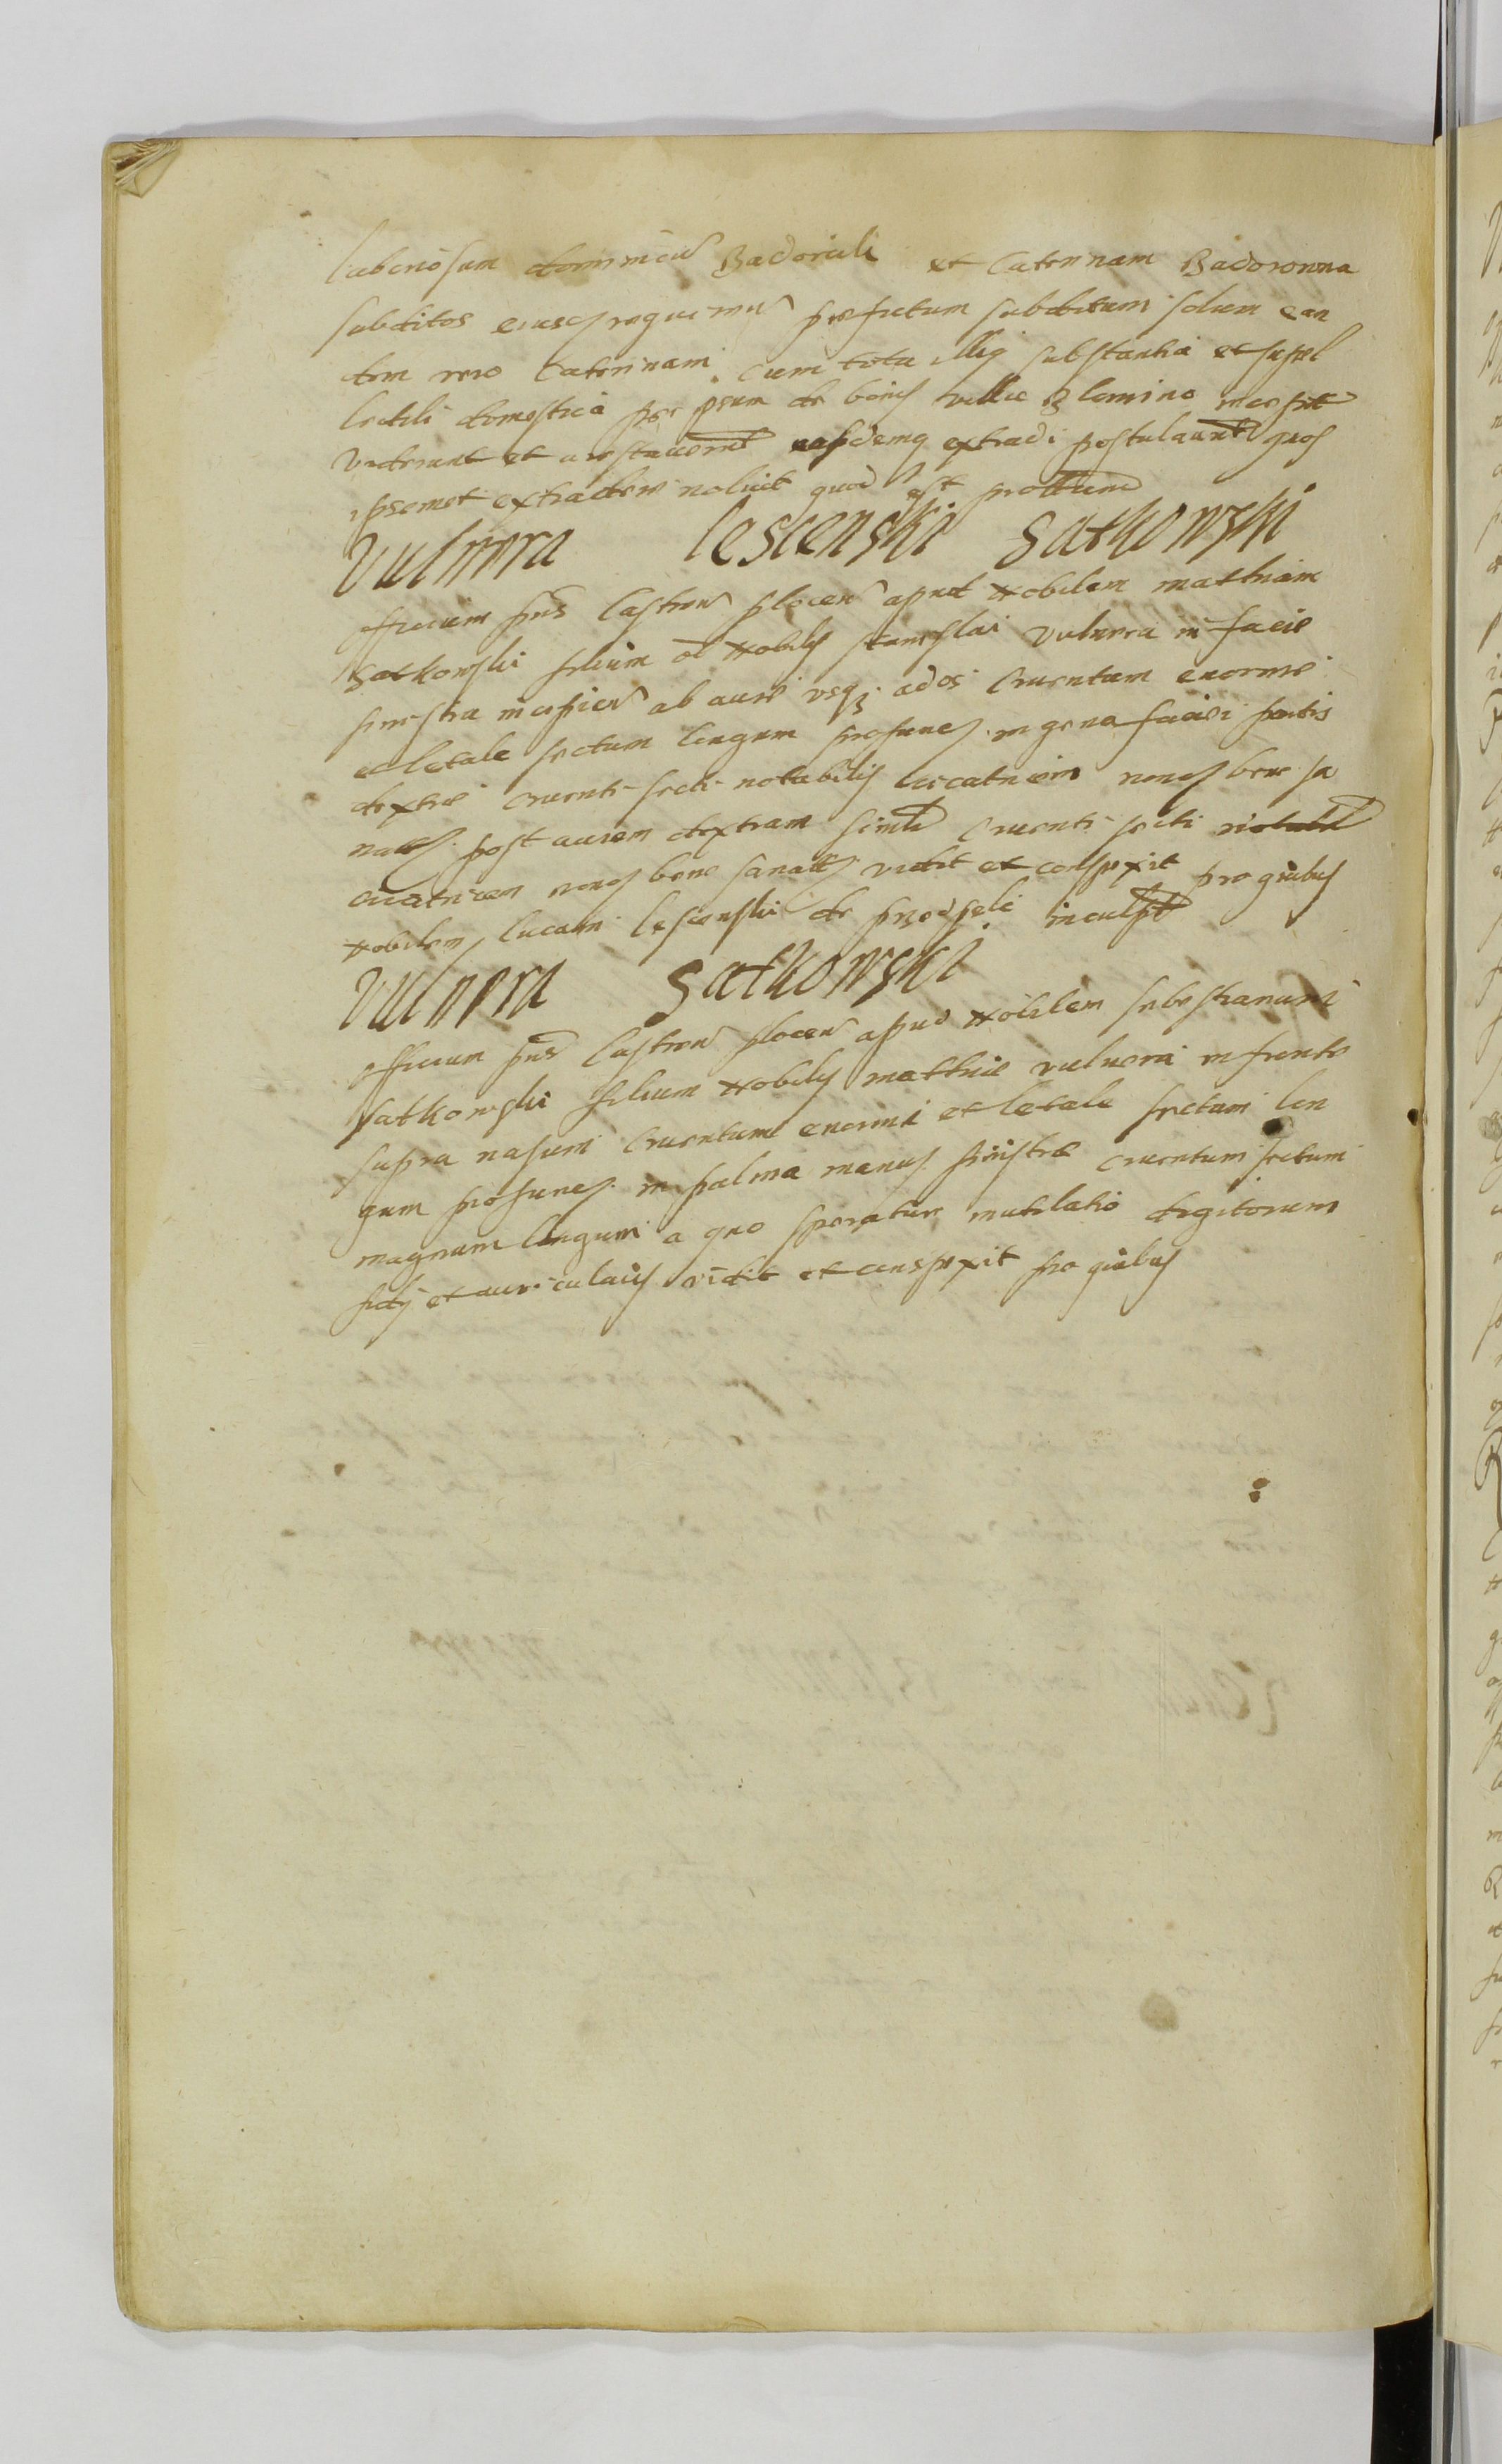 laboriosum dominicu Badoriak et Caterinam Badoronna
subditos eiusq requirimus prefatum subditum solum ean
dem vero Caterinam cum tota illiq substantia et supel
lectili domestica per ipsum de bonis ville Blomino recept
viderunt et arestaverunt eosdemq extradi postularunt quos
ipsemet extradere noluit quod est protestatum
Vulnera Lescenski Satkowski
officium pns Castren plocen apud Nobilem mathiam
Satkowski filium ol Nobilis stanislai vulnera in facie
sinistra incipien ab aure usq ad os Cruentum enorme
et letale sectum longum profunn in gena faciei partis
dextre cruenti secti notabilis cicatricem nonq bene sa
nate post aurem dextram simile Cruenti secti
cicatricem nonq bene sanate vidit et conspexit pro quibus
Nobilem Lucam Lescenski de inculpt
Vulnera Satkowski
officium pns Castren plocen apud Nobilem sebestianum
Satkowski filium Nobilis mathie vulnera in fronte
supra nasum Cruentum enorme et letale sectum lon
gum profunn in palma manus sinistre cruentum sectum
magnum longum a quo speratur mutilatio digitorum
et auricularis vidit et conspexit pro quibus